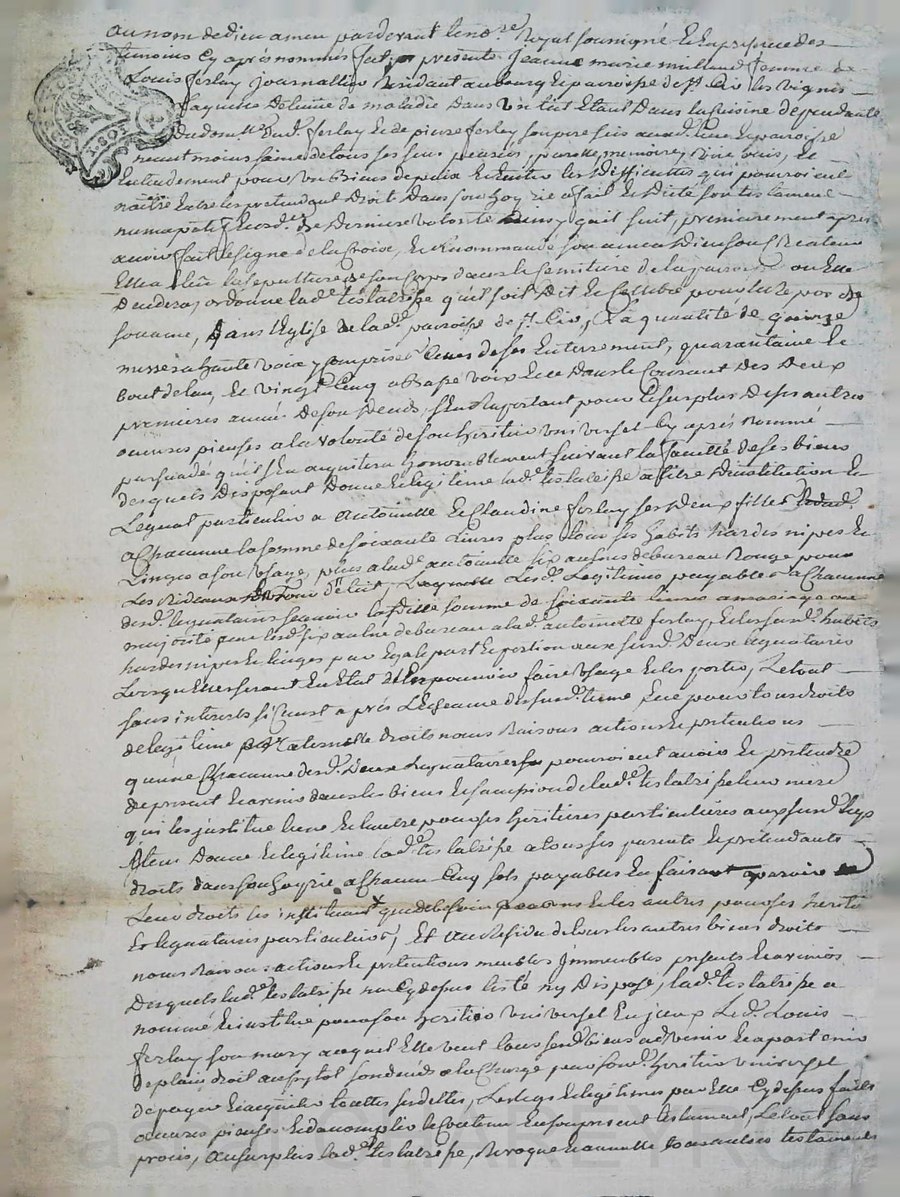 au nom de dieu amen pardevant le no.re Royal soussigné et en presence des
temoins cy après nommés fut presente jeanne marie milland femme de
Louis ferlay journallier Residant au bourg et paroisse de st. Cir les vignes
laquelle de maladie dans un lit Etant dans la cuisine dependante
du domll. dud. ferlay et de pierre ferlay son pere sis aud. lieu et paroisse
neantmoins saine de tous ses sens pensées, parolle, memoire, vüe, ouie, et
Entendement pour un Bien de paix et Eviter les difficultés qui pourroient
naitre Entre les pretendant Droit Dans son hoyrie a fait et Dicté son testament
numcupatif et ord.e de Derniere volonté ainsy qu'il suit, premierement après
avoir fait le signe de la Croix, et Recommandé son ame a Dieu son Createur
Elle a élû la sepulture de son Corps dans le Cemitiere de la paroisse ou Elle
Decedera, ordonne lad.e testatrisse qu'il soit Dit et Cellebré pour le repos de
son ame, dans l'Eglise de lad.e paroisse de st. Cir, la quantité de quinze
messes a haute voix y comprises celles de ses Enterrement, quarantaine et
bout de l'an, et vingt Cinq a Basse voix Et ce Dans le Courant des Deux
premieres année de son Deceds, s'En Raportant pour le surplus de ses autres
oeuvres pieuses a la volonté de son heritier universel Cy après nommé
persuadé qu'il s'En aquitera honorablement suivant la faculté de ses biens
desquels Disposant Donne et legitime lad.e testatrisse a titre D'institution et
Legat particulier a antoinette et Claudine ferlay ses Deux filles
a Chacunne la somme de soixante Livres plus tous ses habits hardes nipes et
Linges a son usage, plus a lad.e antoinette six aunes de bureau Rouge pour
Les Rideaux d'un Tour de lit, Lesd. Legitimes payables a Chacunne
desd. legataires sçavoir laditte somme de soixante livres a mariage ou
majorité pour lesd. six aulne de bureau a lad. antoinette ferlay, et les susd. habits
hardes nipes et linges par Egale part et portion aux susd. Deux legataires
Lorsqu'elles seront En Etat de pouvoir faire usage et les porter, Le tout
sans interets si Ce n'est après L'echeance desusd. terme, Et ce pour tous droits
de legitime paternelle droits noms Raisons actions et pretentions
qu'une Chacunne desd. Deux legataires pourroient avoir et pretendre
de present et avenir dans les biens et succession de lad.e testatrisse leur mere
qui les justitue l'une et l'autre pour ses heritieres particulieres aux susd. legs
Item Donne et legitime lad.e testatrisse a tous ses parents et pretendants
droits dans son hoyrie a Chacun Cinq sols payables En faisant aparoir
Leur droits les instituant que de besoin et les autres pour ses heriti
Et legataires particuliers, Et au Residu de tous les autres biens droits
noms Raisons actions et pretentions meubles immeubles presents et avenirs
Desquels lad.e testatrisse na Cy dessus testé ny Disposé, lad.e testatrisse a
nommé et institue pour son heritier universel Led. Louis
ferlay son mary auquel Elle veut tous sesd. biens advenir et apartenir
de plain droit aussytot son deceds a la Charge par sond. heritier universel
de payer et acquitter touttes ses dettes, Les legs et legitimes par Elle Cy dessus faits
oeuvres pieuses et d'accomplir le Contenu En son present testament, Le tout sans
procès, au surplus lad.e testatrisse, Revoque et annulle tous autres testaments